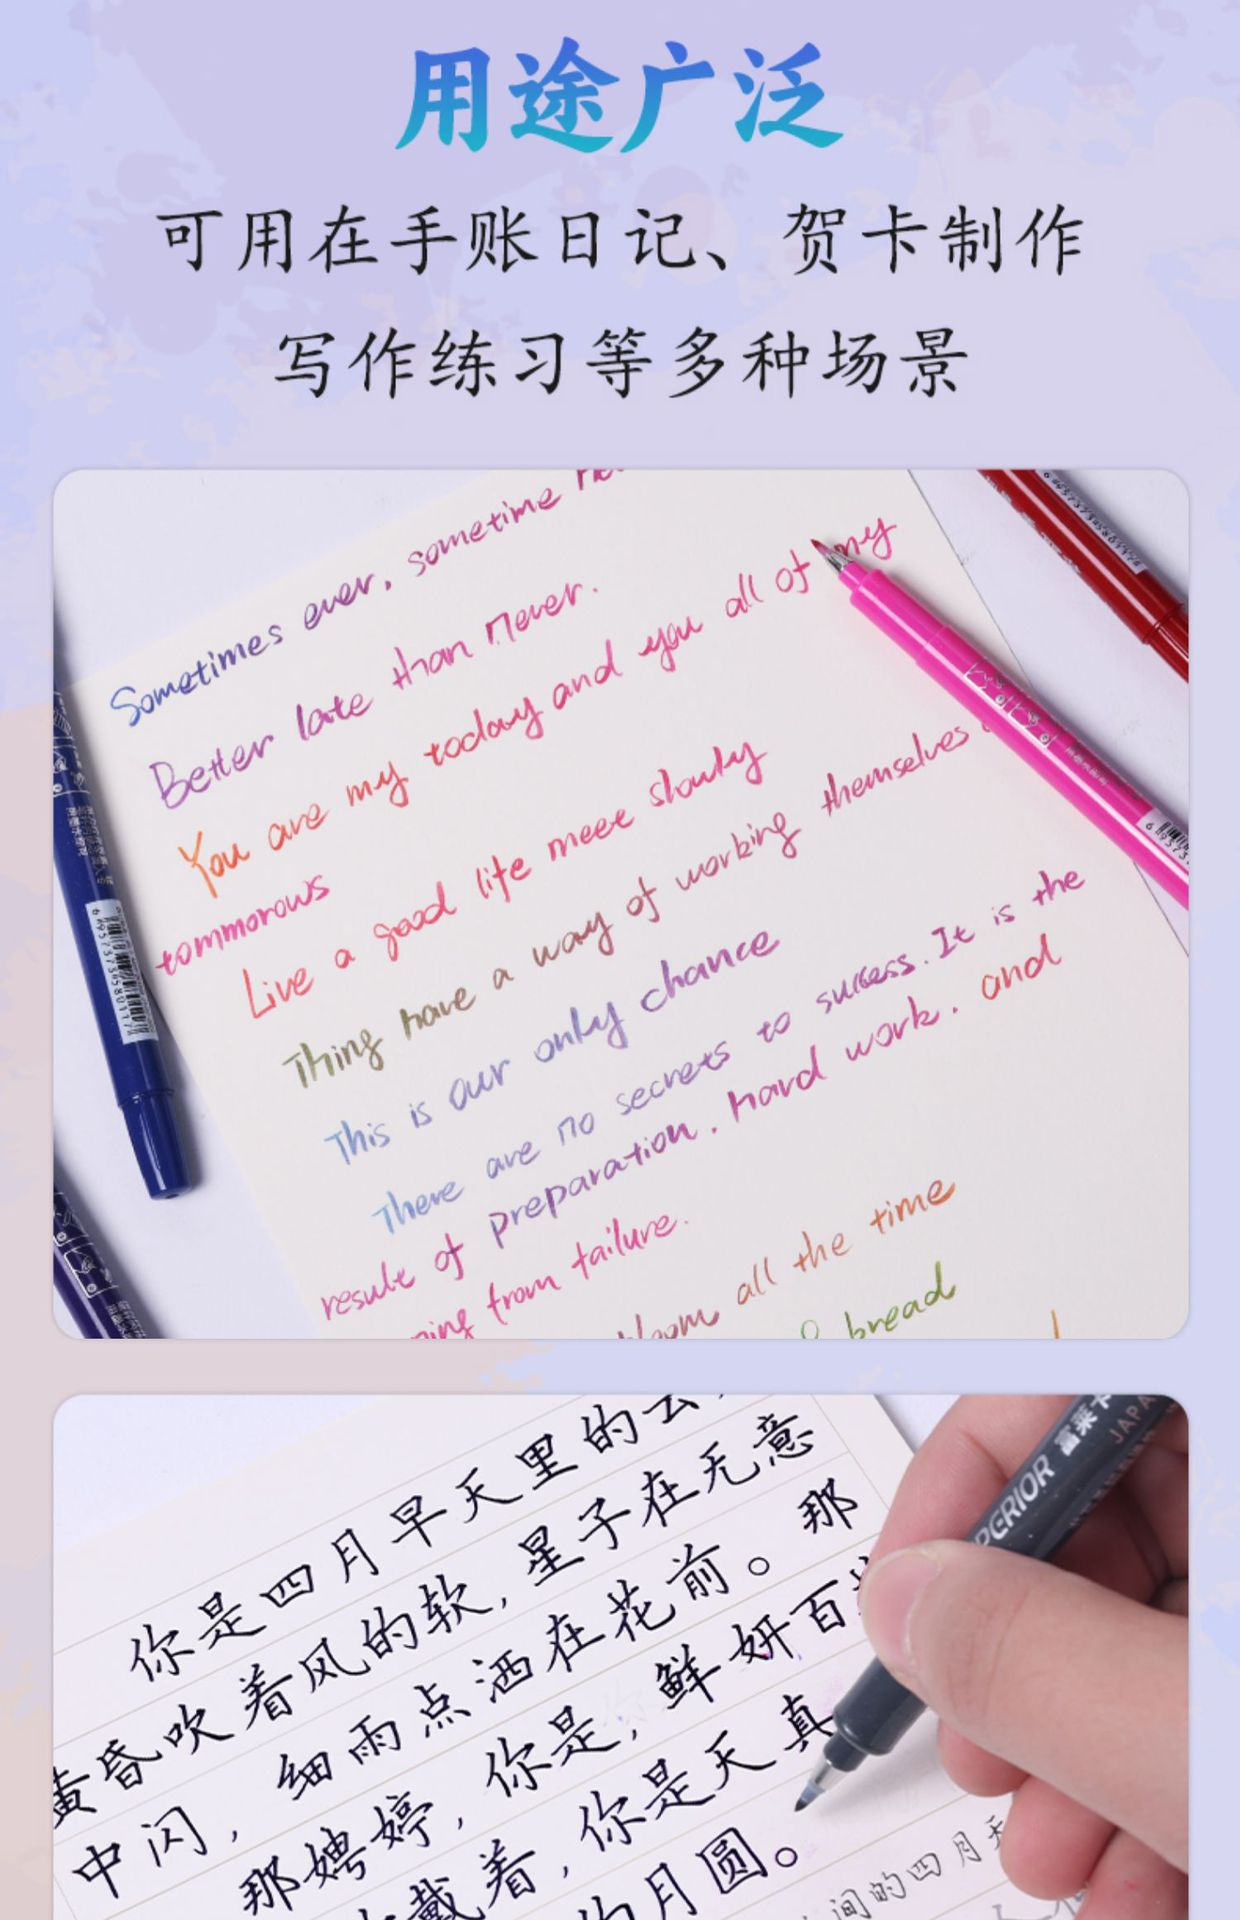 用途广泛
可用在手账日记、贺卡制作
写作练习等多种场景
Sometimes ever, sometime
Better late than never.
You are my today and you all of my
tommorows
Live a good life meet slowly
Thing have a way of working themselves
This is our only chance
There are no secrets to success. It is the
result of preparation. hard work. and
from failure.
bloom all the time
bread
你是四月早天里的云
黄昏吹着风的软,星子在无意
中闪,细雨点洒在花前。那
那娉婷,你是,鲜妍百
戴着,你是天真
的月圆。
间的四月天
PERIOR 富莱卡
JAPA